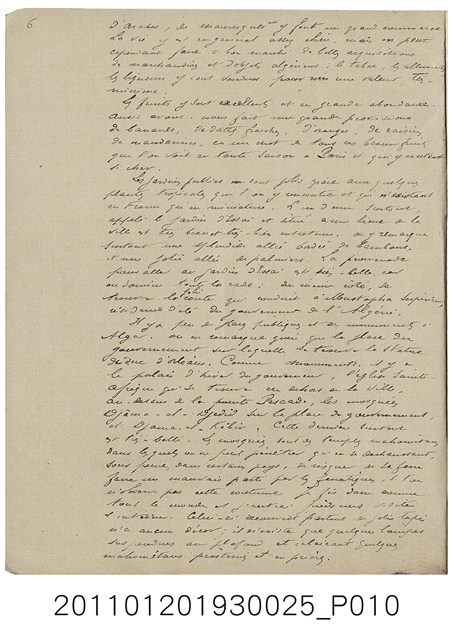 6
d'arabes, de mauresques y font un grand commerce
La vie y est en général assez chère, mais on peut
cependant faire à bon marché de belles acquisitions
de marchandises et d'objets algériens; le tabac, les allumettes
les liqueurs y sont vendues pour une valeur très
minime.
Les fruits y sont excellents et en grande abondance
aussi avons-nous fait une grande provisions
de bananes, de dattes fraîches, d'oranges, de raisins,
de mandarines, en un mot de tous ces beaux fruits
que l'on voit en toute saison à Paris et qui y coûtent
si cher.
Les jardins publics sont jolis grâce aux quelques
plantes tropicales que l'on y rencontre et qui n'existent
en France qu'en miniature. L'un d'eux surtout
appelé le jardin d'Essai et situé à une lieue de la
ville est très beau et très bien entretenu. on y remarque
surtout une splendide allée bordée de bambous
et une jolie allée de palmiers. La promenade
pour aller au jardin d'Essai est très belle car
on domine toute la rade; du même côté, se
trouve la route qui conduit à Moustapha Supérieur,
résidence d'été du gouvernement de l'Algérie.
Il y a peu de places publiques et de monuments à
Alger. on ne remarque guère que la place du
gouvernement sur laquelle se trouve la statue
du duc d'orléans. Comme monuments, il y a
le palais d'hiver du gouverneur, l'église Sainte
Afrique qui se trouve en dehors de la ville
au-dessus de la pointe Pescade, les mosquées
Djama-el-Djedid sur la place du gouvernement,
et Djama-el-Kébir; Cette dernière surtout
est très belle. Les mosquées sont des temples mahométans
dans lesquels on ne peut pénétrer qu'en se déchaussant,
sous peine, dans certains pays, de risquer de se faire
faire un mauvais parti par les fanatiques si l'on
n'observe pas cette coutume. Je fis donc comme
tout le monde et j'entrai pieds nus visiter
l'intérieur. Celui-ci recouvert partout de jolis tapis
n'a aucun décor; il n'existe que quelques lampes
suspendues au plafond et éclairant quelques
mahométans prosternés et en prières.
201101201930025_P010